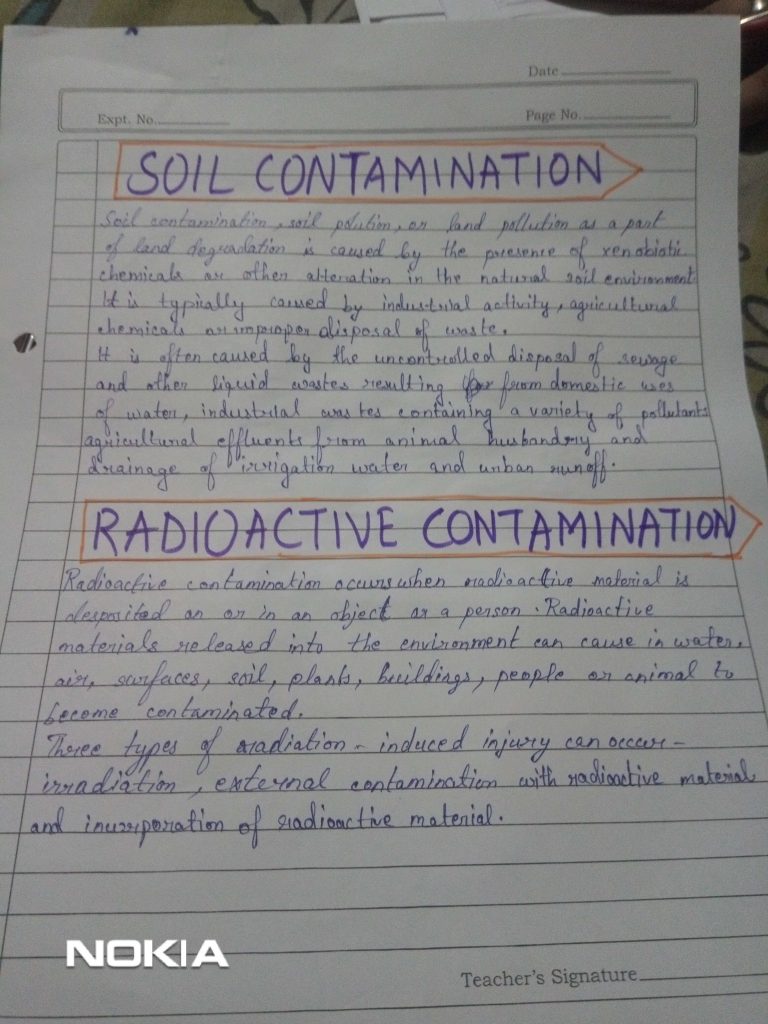 Date
Expt. No.
Page No.
SOIL CONTAMINATION
Soil contamination, soil polution, or land pollution as a part
of land degradation is caused by the presence of xenobiotic
chemicals or other alteration in the natural soil environment
It is typically caused by industrial activity, agricultural
chemicals or improper disposal of waste.
It is often caused by the uncontrolled disposal of sewage
and other liquid wastes resulting from domestic uses
of water, industrial wastes containing a variety of pollutants
agricultural effluents from animal husbandry and
drainage of irrigation water and urban runoff.
RADIOACTIVE CONTAMINATION
Radioactive contamination occurs when radioactive material is
desposited on or in an object or a person. Radioactive
materials released into the environment can cause in water,
air, surfaces, soil, plants, buildings, people or animal to
become contaminated.
Three types of radiation - induced injury can occur -
irradiation, external contamination with radioactive material
and incurrporation of radioactive material.
NOKIA
Teacher's Signature